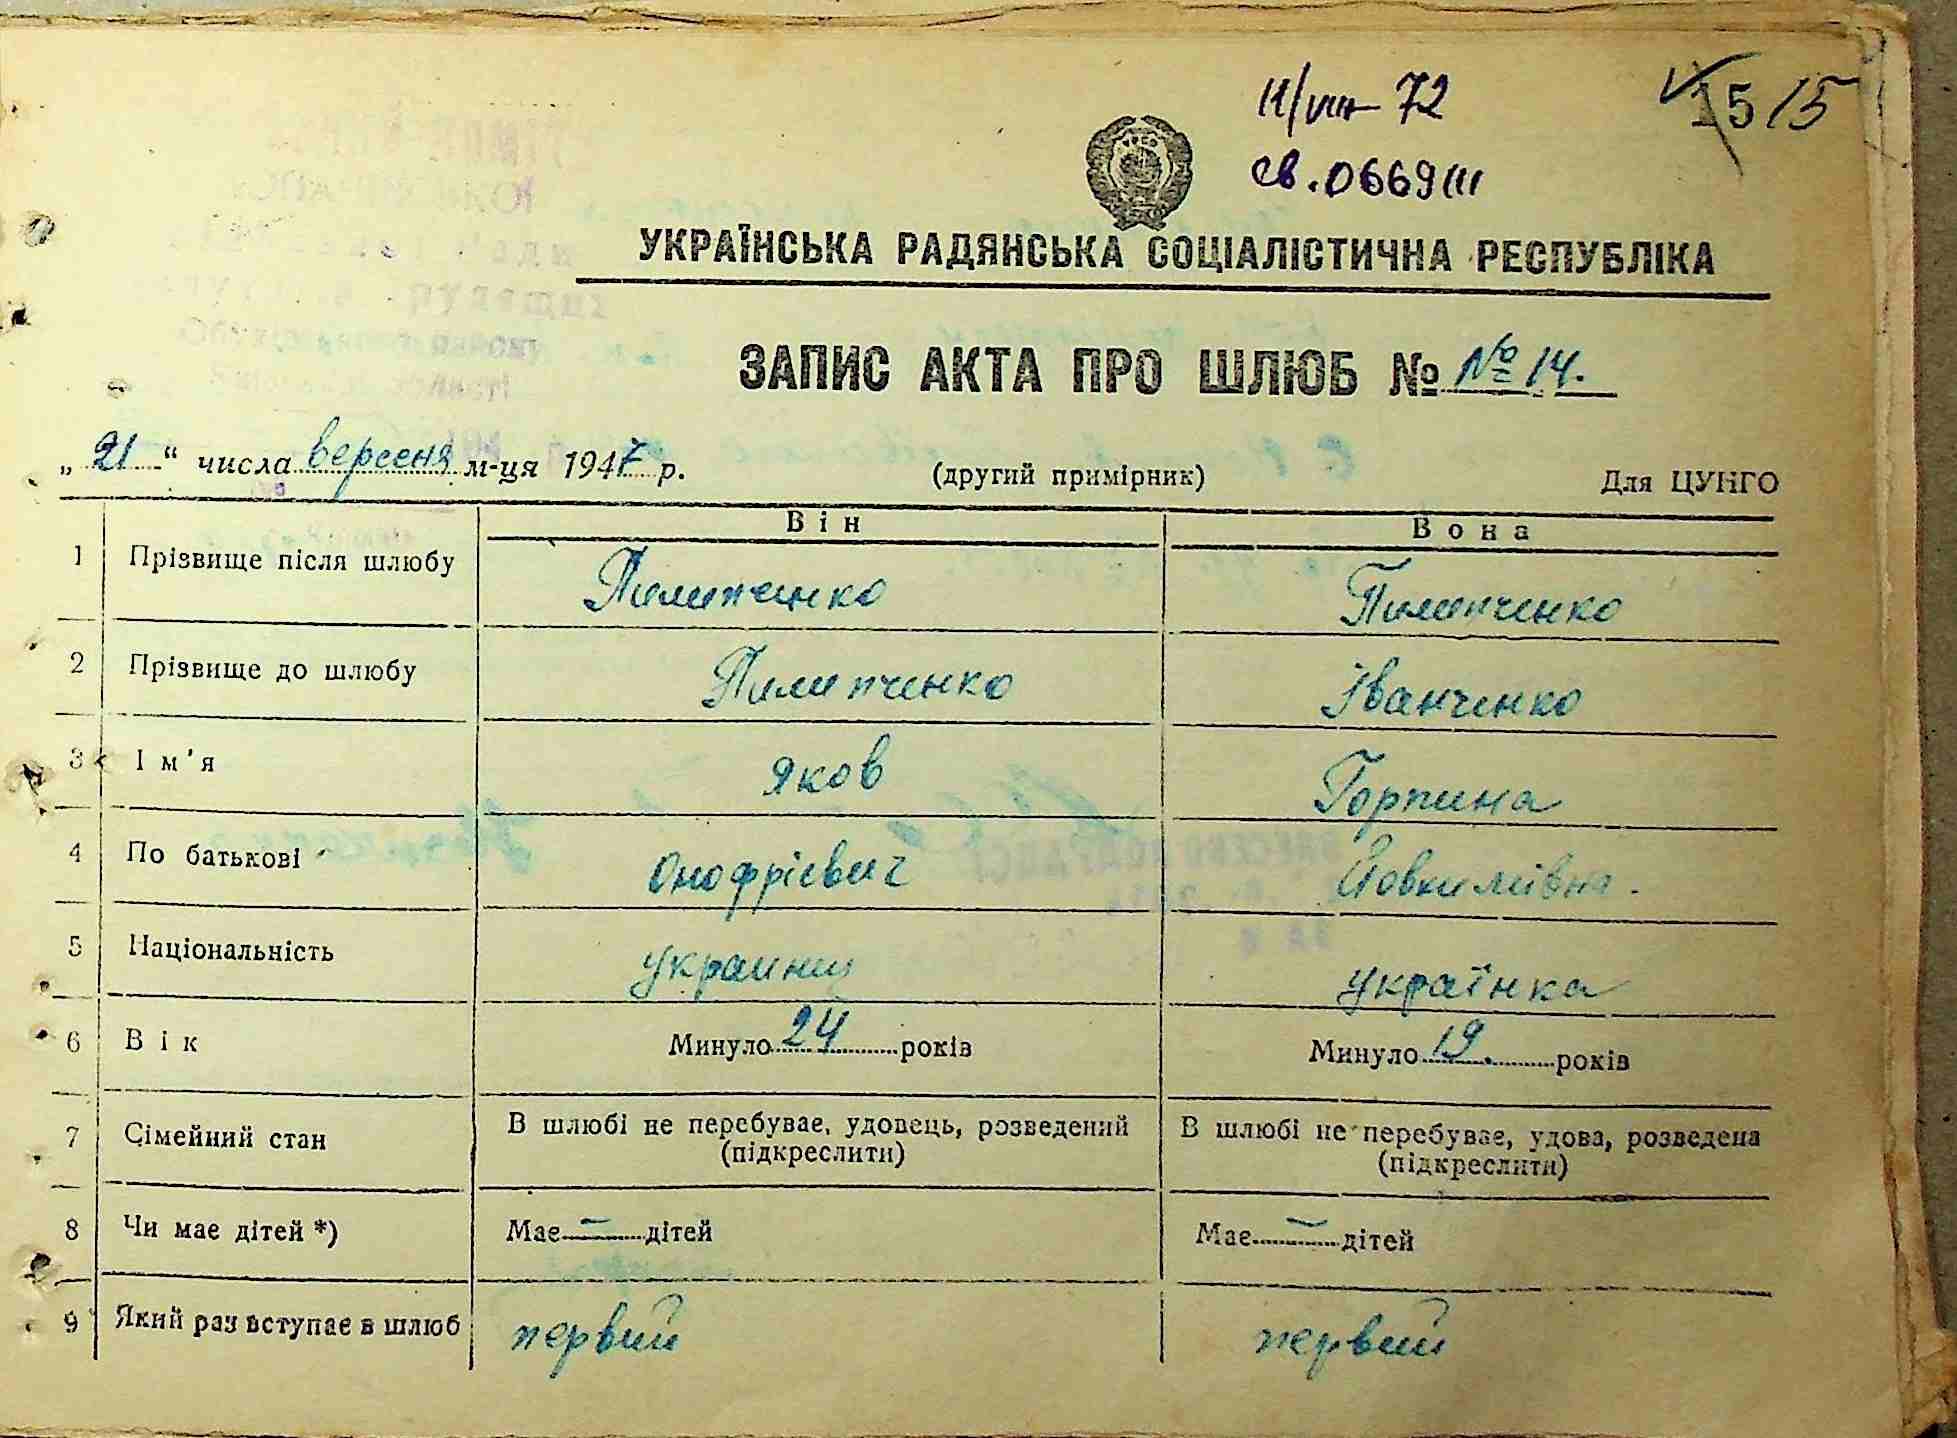 11/VIII 72
св. 0669 III
15 15
УКРАЇНСЬКА РАДЯНСЬКА СОЦІАЛІСТИЧНА РЕСПУБЛІКА
ЗАПИС АКТА ПРО ШЛЮБ № №14.
„21“ числа вересня м-ця 1947 р. (другий примірник) Для ЦУНГО
Він Вона
1 Прізвище після шлюбу Пилипченко Пилипченко
2 Прізвище до шлюбу Пилипченко Іванченко
3 Ім'я Яков Горпина
4 По батькові Онофрієвич Йовкимівна.
5 Національність украинец українка
6 Вік Минуло 24 років Минуло 19. років
7 Сімейний стан В шлюбі не перебуває, удовець, розведений (підкреслити) В шлюбі не перебуває, удова, розведена (підкреслити)
8 Чи має дітей *) Має — дітей Має — дітей
9 Який раз вступає в шлюб первий первий